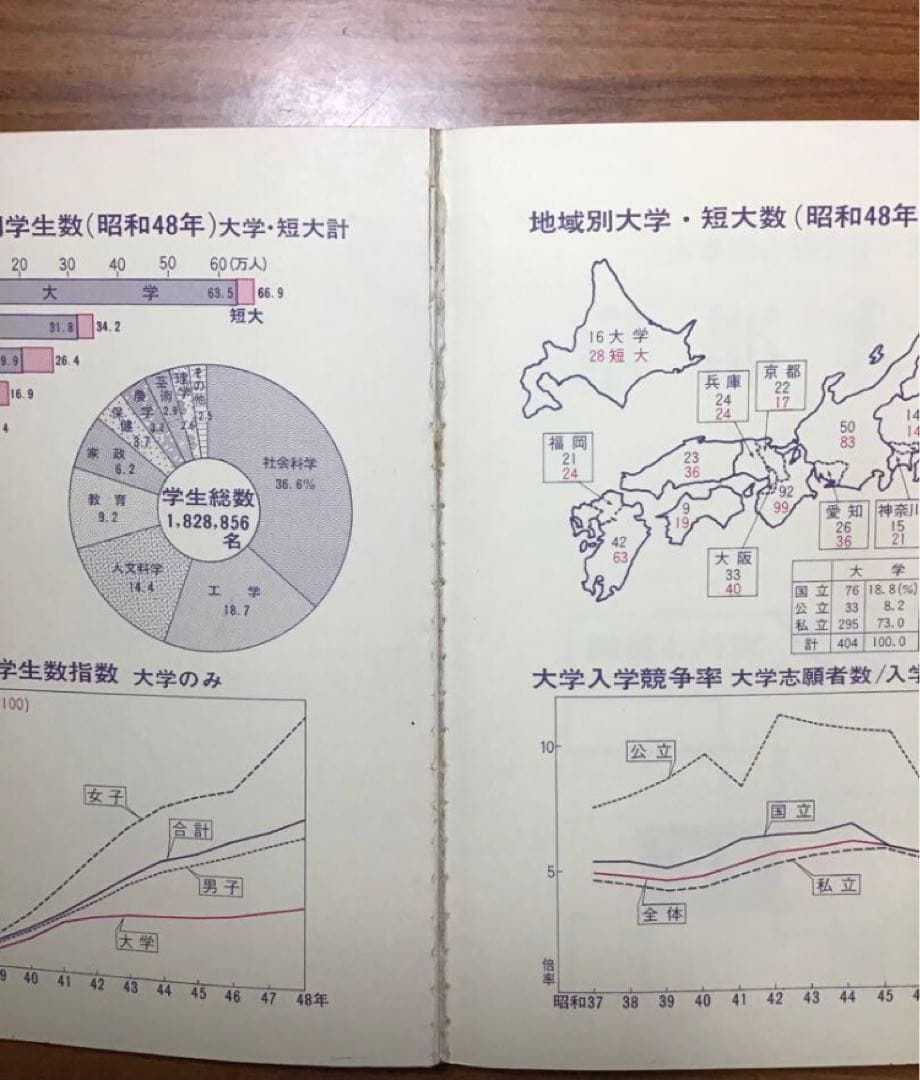 学生数(昭和48年)大学・短大計
20 30 40 50 60(万人)
大 学 63.5 66.9
短大
31.8 34.2
9.9 26.4
16.9
4
その他 2.5
理学 2.6
芸術 2.9
農学
保健 3.7
家政 6.2
教育 9.2
人文科学 14.4
工 学 18.7
社会科学 36.6%
学生総数
1,828,856
名
学生数指数 大学のみ
100)
女子
合計
男子
大学
9 40 41 42 43 44 45 46 47 48年
地域別大学・短大数(昭和48年
16大 学
28短 大
兵庫
24
24
京都
22
17
福岡
21
24
23
36
50
83
14
14
9
19
92
99
42
63
大阪
33
40
愛知
26
36
神奈川
15
21
大 学
国立 76 18.8(%)
公立 33 8.2
私立 295 73.0
計 404 100.0
大学入学競争率 大学志願者数/入学
10
5
倍率
公立
国立
私立
全体
昭和37 38 39 40 41 42 43 44 45 4